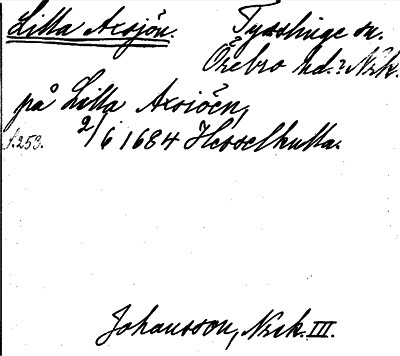 Lilla Axsjön. Tysslinge sn.
Örebro hd.: Nrk.
på Lilla Axsiöen,
s.253. 2/6 1684 Hesselkulla.
Johansson, Nrk. III.